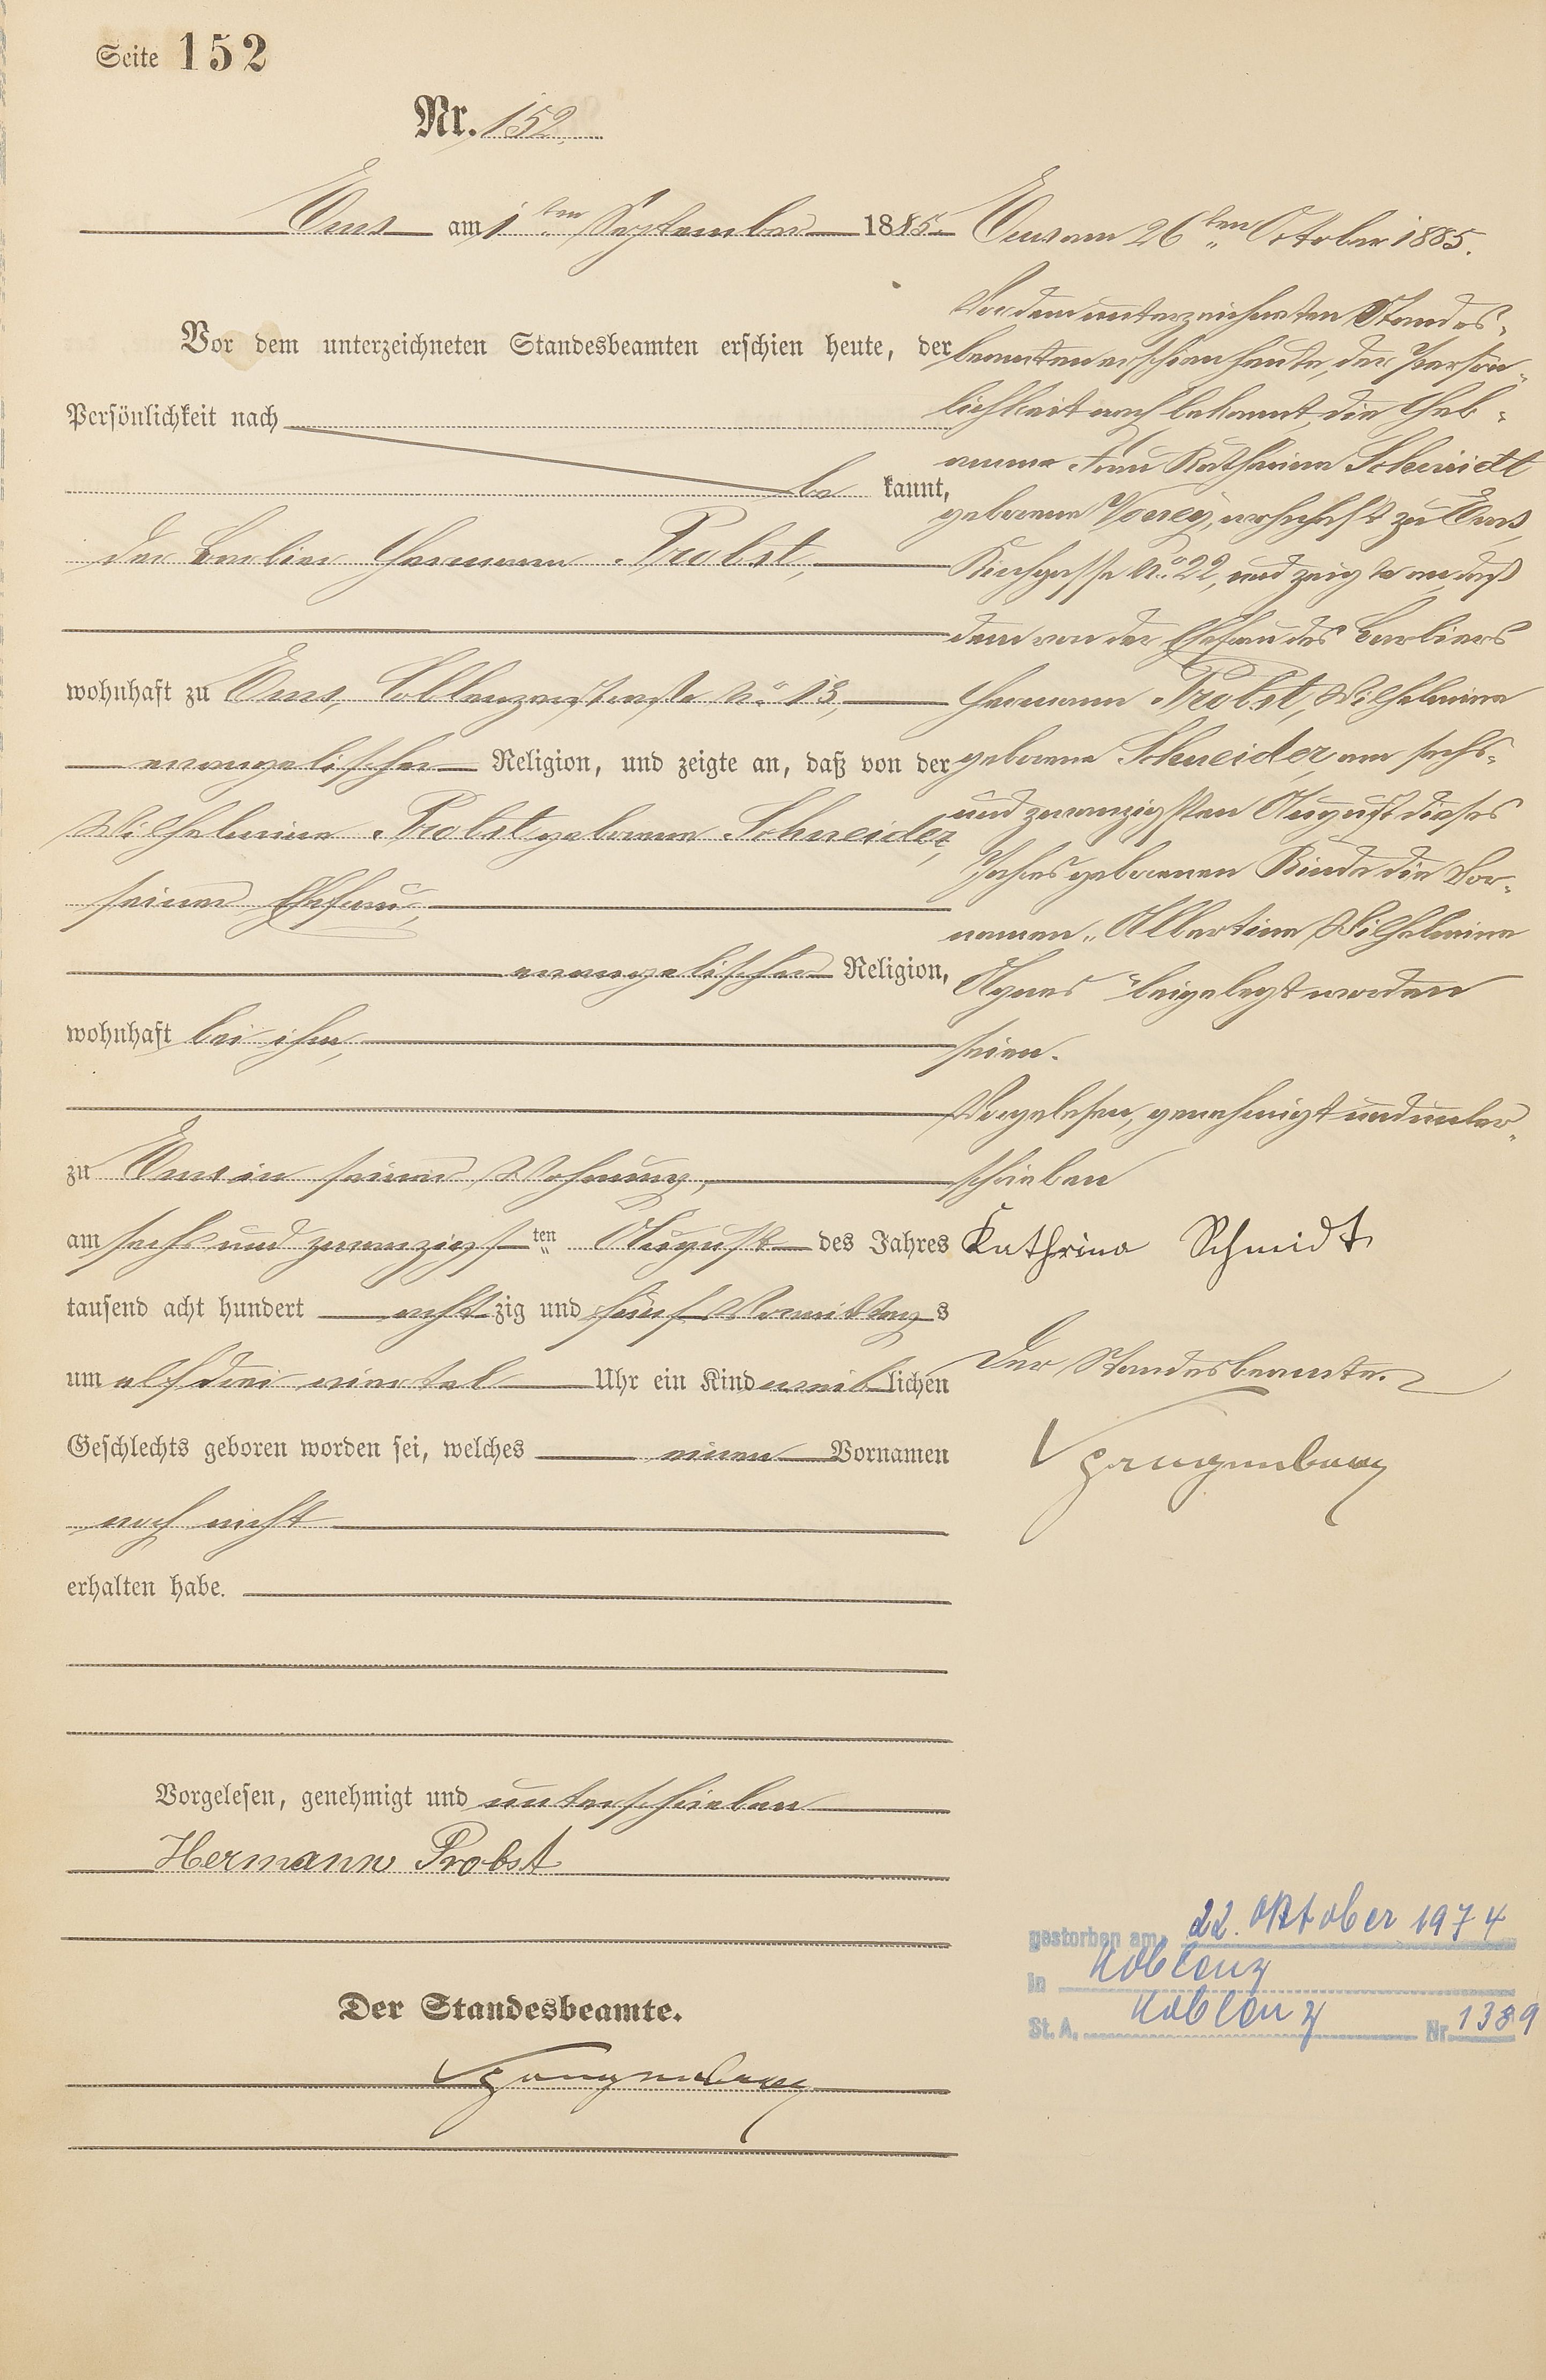 Seite 152
Nr. 152.
Ems am 1ten September 1885.
Vor dem unterzeichneten Standesbeamten erschien heute, der
Persönlichkeit nach
be kannt,
der Barbier Hermann Probst,
wohnhaft zu Ems, Coblenzerstraße No 13,
evangelischer Religion, und zeigte an, daß von der
Wilhelmine Probst geborene Schneider,
seiner Ehefrau,
evangelischer Religion,
wohnhaft bei ihm,
zu Ems in seiner Wohnung,
am sechs und zwanzigsten August des Jahres
tausend acht hundert achtzig und fünf Vormittags
um elf drei viertel Uhr ein Kind weiblichen
Geschlechts geboren worden sei, welches einen Vornamen
noch nicht
erhalten habe.
Vorgelesen, genehmigt und unterschrieben
Hermann Probst
Der Standesbeamte.
Ems am 26ten October 1885.
Vor dem unterzeichneten Standes-
beamten erschien heute, der Persön-
lichkeit nach bekannt, die Heb-
amme Frau Katharina Schmidt
geborene wohnhaft zu Ems,
Kirchgasse No 22, und zeigte an, daß
dem von der Ehefrau des Barbiers
Hermann Probst, Wilhelmine
geborene Schneider, am sechs-
und zwanzigsten August dieses
Jahres geborenen Kinde die Vor-
namen „Albertine Wilhelmine
Agnes" beigelegt worden
seien.
Vorgelesen, genehmigt und unter-
schrieben
Kathrina Schmidt
Der Standesbeamte.
gestorben am 22. Oktober 1974
in Koblenz
St. A. Koblenz Nr. 1389